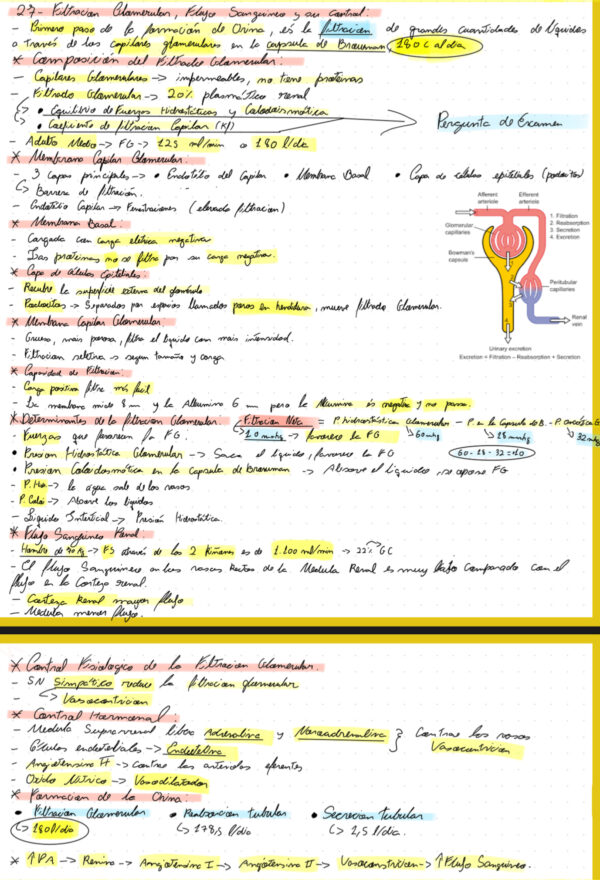 27- Filtracion Glomerular, Flujo Sanguineo y su control:
- Primero paso de la formacion de Orina, es la filtracion de grandes cuantidades de liquidos
a traves de los capilares glomerulares en la capsula de Browman 180 L al dia
* Composicion del Filtrado Glomerular:
- Capilares Glomerulares -> impermeables, no tiene proteinas
- Filtrado Glomerular -> 20% plasmatico renal
• Equilibrio de Fuerzas Hidrostáticas y Coloidosmótica
• Coeficiente de filtracion Capilar (Kf)
Pergunta de Examen
- Adulto Medio -> FG -> 125 ml/min o 180 l/dia
* Membrana Capilar Glomerular:
- 3 capas principales -> • Endotelio del Capilar • Membrana Basal • Capa de celulas epiteliales (podocitos)
Barrera de filtración.
- Endotelio Capilar -> Fenestraciones (elevada filtracion)
* Membrana Basal:
- Cargada con carga eletrica negativa
- Las proteinas no se filtra por su carga negativa.
* Capa de Celulas Epiteliales:
- Recubre la superficie externa del glomérulo
- Podocitos -> Separados por espacios llamados poros en hendidura, mueve filtrado Glomerular.
Afferent arteriole
Efferent arteriole
Glomerular capillaries
Bowman's capsule
1. Filtration
2. Reabsorption
3. Secretion
4. Excretion
Peritubular capillaries
Renal vein
Urinary excretion
Excretion = Filtration – Reabsorption + Secretion
* Membrana Capilar Glomerular:
- Grueso, mais porosa, filtra el liquido con mais intensidad.
- Filtracion seletiva -> segun tamaño y carga
* Capacidad de Filtracion:
- Carga positiva filtra más facil
- La membrana mide 8 nm y la Albumina 6 nm pero la Albumina és negativa y no passa.
* Determinantes de la filtracion Glomerular. Filtracion Neta = P. hidrostástica Glomerular - P. en la Capsula de B. - P. oncótica G
- Fuerzas que favorecen la FG. 10 mmhg -> favorece la FG 60 mmhg 18 mmhg 32 mmhg
• Presion Hidrostática Glomerular -> Saca el liquido, favorece la FG 60 - 18 - 32 = 10
• Presion Coloidosmótica en la capsula de browman -> Absorve el liquido, se opone FG
- P. Hid -> la agua sale de los vasos.
- P. Coloi -> Absorve los liquidos
- Liquido Intersticial -> Presión Hidrostática.
* Flujo Sanguineo Renal:
- Hombre de 70 Kg -> FS através de los 2 Riñones es de 1.100 ml/min -> 22% GC
- El flujo Sanguineo en los vasos Rectos de la Medula Renal es muy bajo comparado con el
flujo en la Corteza renal.
- Corteza Renal mayor flujo
- Medula menor flujo.
* Control Fisiologico de la Filtracion Glomerular.
- SN Simpático reduce la filtracion glomerular
- Vasocontricion
* Control Hormonal:
- Medula Suprarrenal libera Adrenalina y Noradrenalina } Contrae los vasos
Vasocontricion
- Células endoteliales -> Endotelina
- Angiotensina II -> contrae las arteriolas eferentes
- Oxido Nitrico -> Vasodilatador
* Formacion de la Orina:
• Filtracion Glomerular • Reabsorcion tubular • Secrecion tubular
180 l/dia 178,5 l/dia 1,5 l/dia.
* ↑PA -> Renina -> Angiotensina I -> Angiotensina II -> Vasoconstricion -> ↑Flujo Sanguineo.